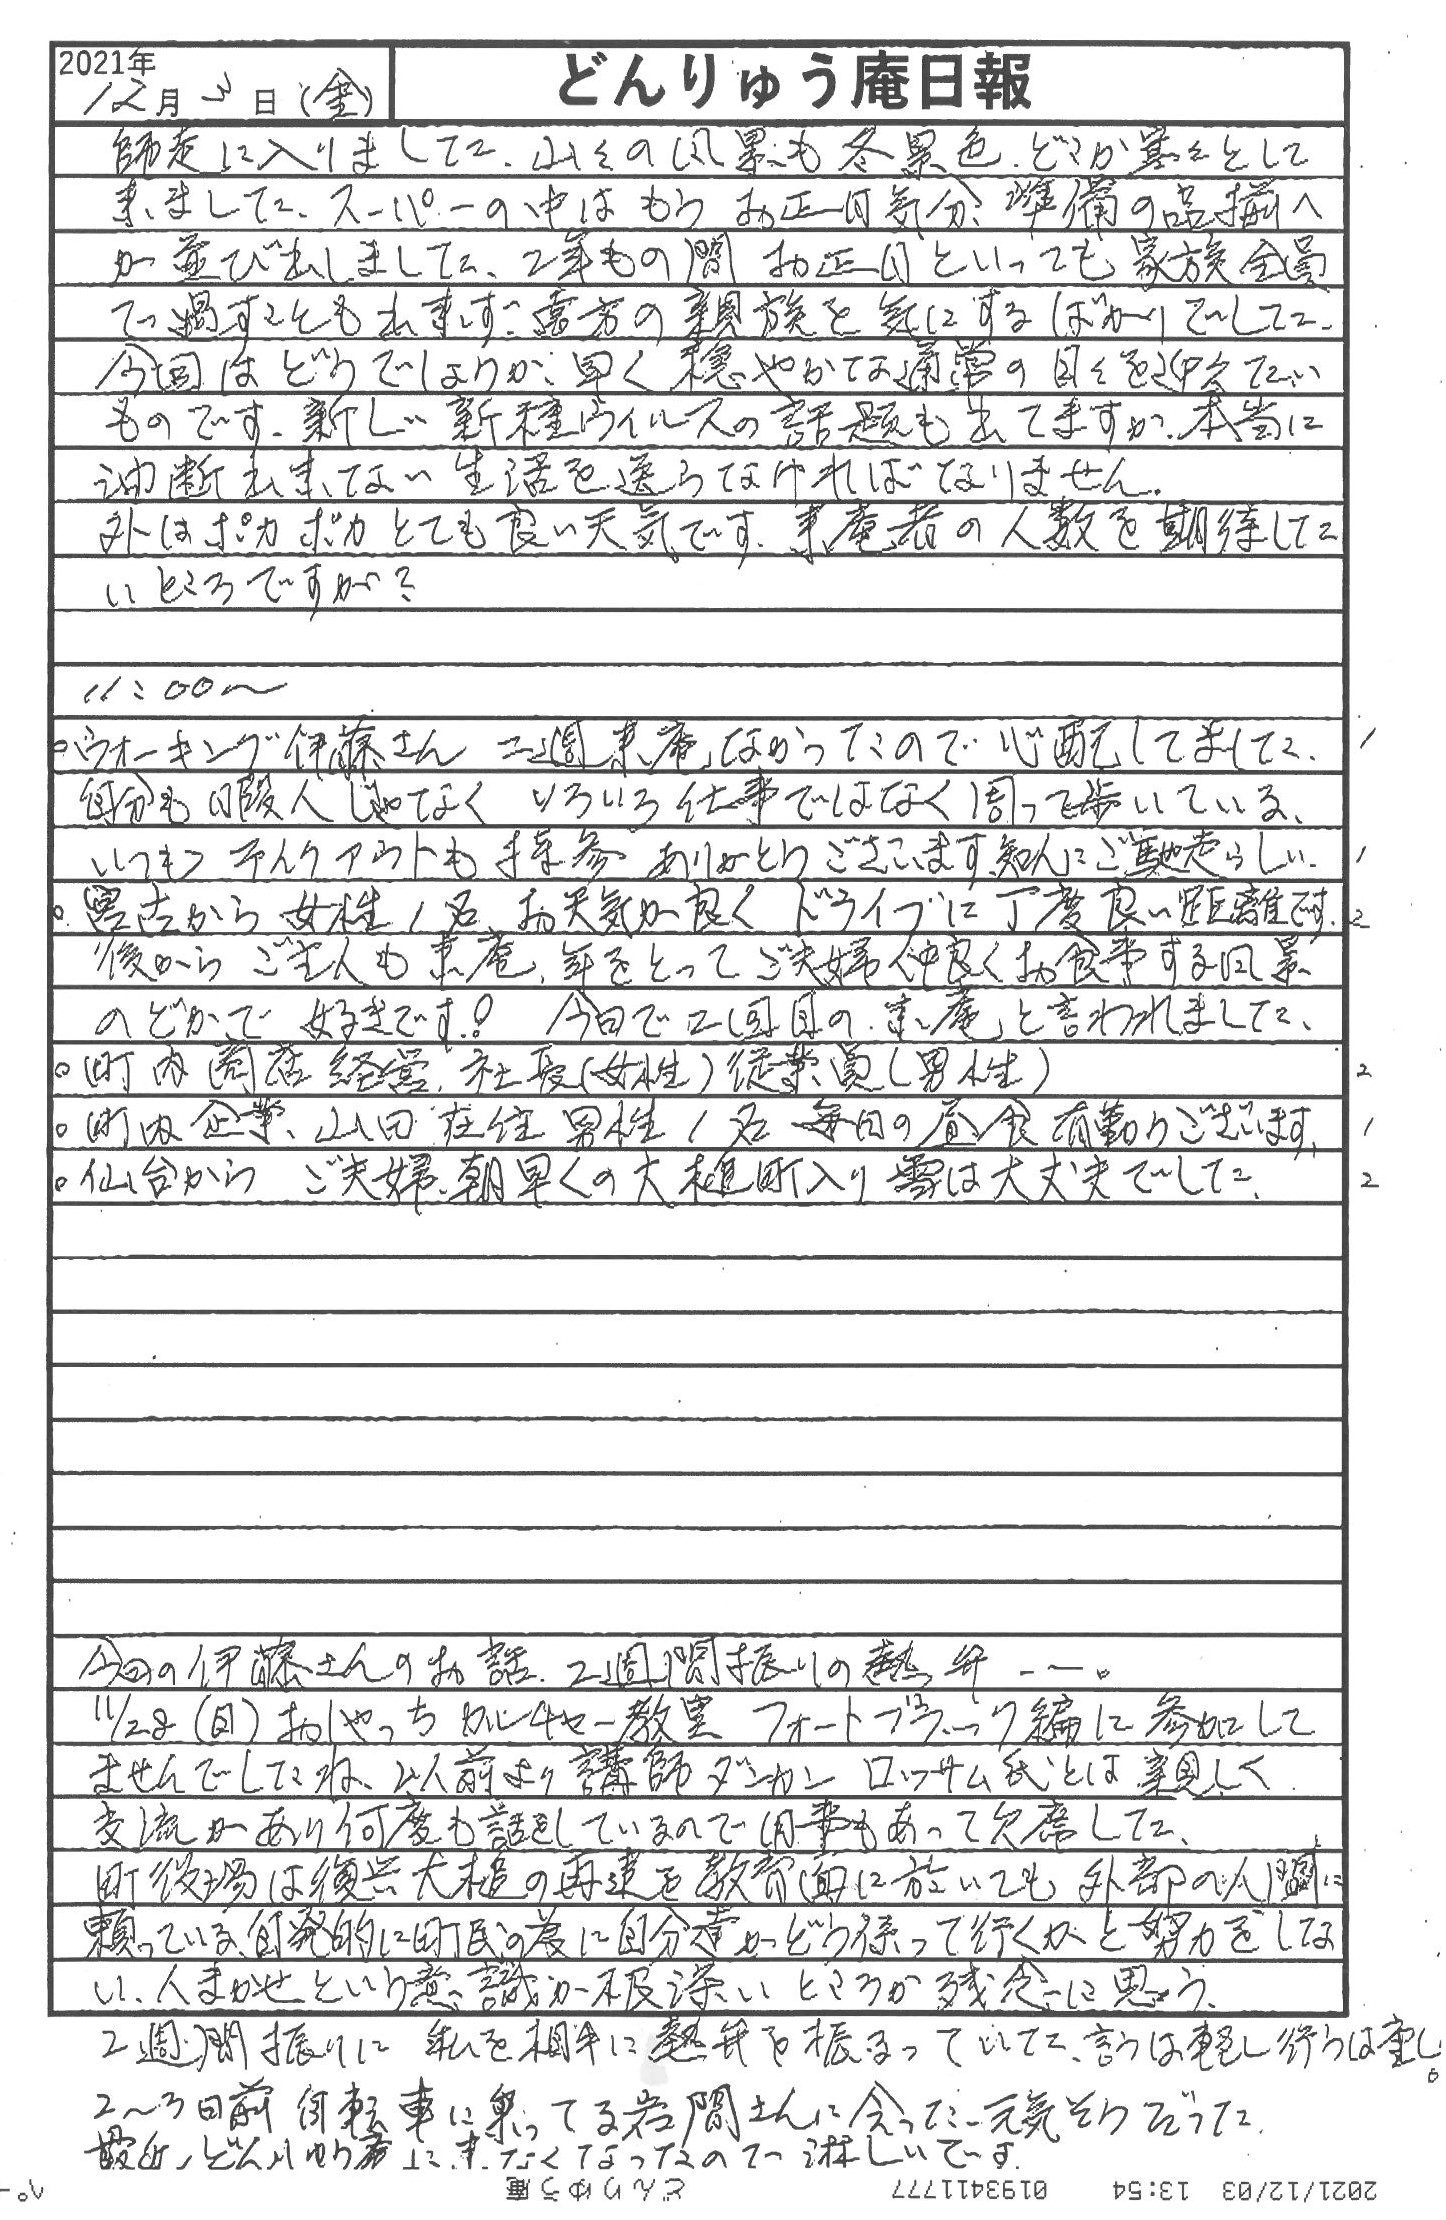 2021年
12月3日(金)
どんりゅう庵日報
師走に入りました、山々の風景も冬景色、どこか寒々として
来ました、スーパーの中はもうお正月気分、準備の品揃へ
が並び出しました、2年もの間 お正月といっても家族全員
で過すことも出来ず、遠方の親族を気にするばかりでした、
今回はどうでしょうか、早く穏やかな通常の日々を迎えたい
ものです、新しい新種ウイルスの話題も出てますが、本当に
油断出来ない生活を送らなければなりません。
外はポカポカとても良い天気です、来庵者の人数を期待した
いところですが?
11:00〜
○ウォーキング伊藤さん 二週来庵なかったので心配してました、 1
自分も暇人じゃなく いろいろ仕事ではなく周って歩いている、
いつもテイクアウトも持参 ありがとうございます、知人にご馳走らしい、 1
○宮古から女性1名 お天気が良く ドライブに丁度良い距離です、 2
後からご主人も来庵、年をとってご夫婦仲良くお食事する風景
のどかで 好きです! 今日で2回目の来庵と言われました、
○町内商店経営、社長(女性)従業員(男性) 2
○町内企業、山田在住 男性1名 毎日の昼食有難うございます、 1
○仙台から ご夫婦、朝早くの大槌町入り 雪は大丈夫でした、 2
今日の伊藤さんのお話、2週間振りの熱弁---。
11/28(日)おしゃっちカルチャー教室 フォートブラック編に参加して
ませんでしたね、以前より講師ダンカン ロッサム氏とは親しく
交流があり何度も話をしているので用事もあって欠席した、
町役場は復興大槌の再建を教育面に於いても外部の人間に
頼っている、自発的に町民の為に自分達がどう係って行くかと努力をしな
い、人まかせという意識が根深いところが残念に思う、
2週間振りに 私を相手に熱弁を振るっていた、言うは軽し行うは重し。
2〜3日前自転車に乗ってる岩間さんに会った、元気そうだった、
最近、どんりゅう庵に来なくなったので淋しいです
2021/12/03 13:54 0193411777 どんりゅう庵